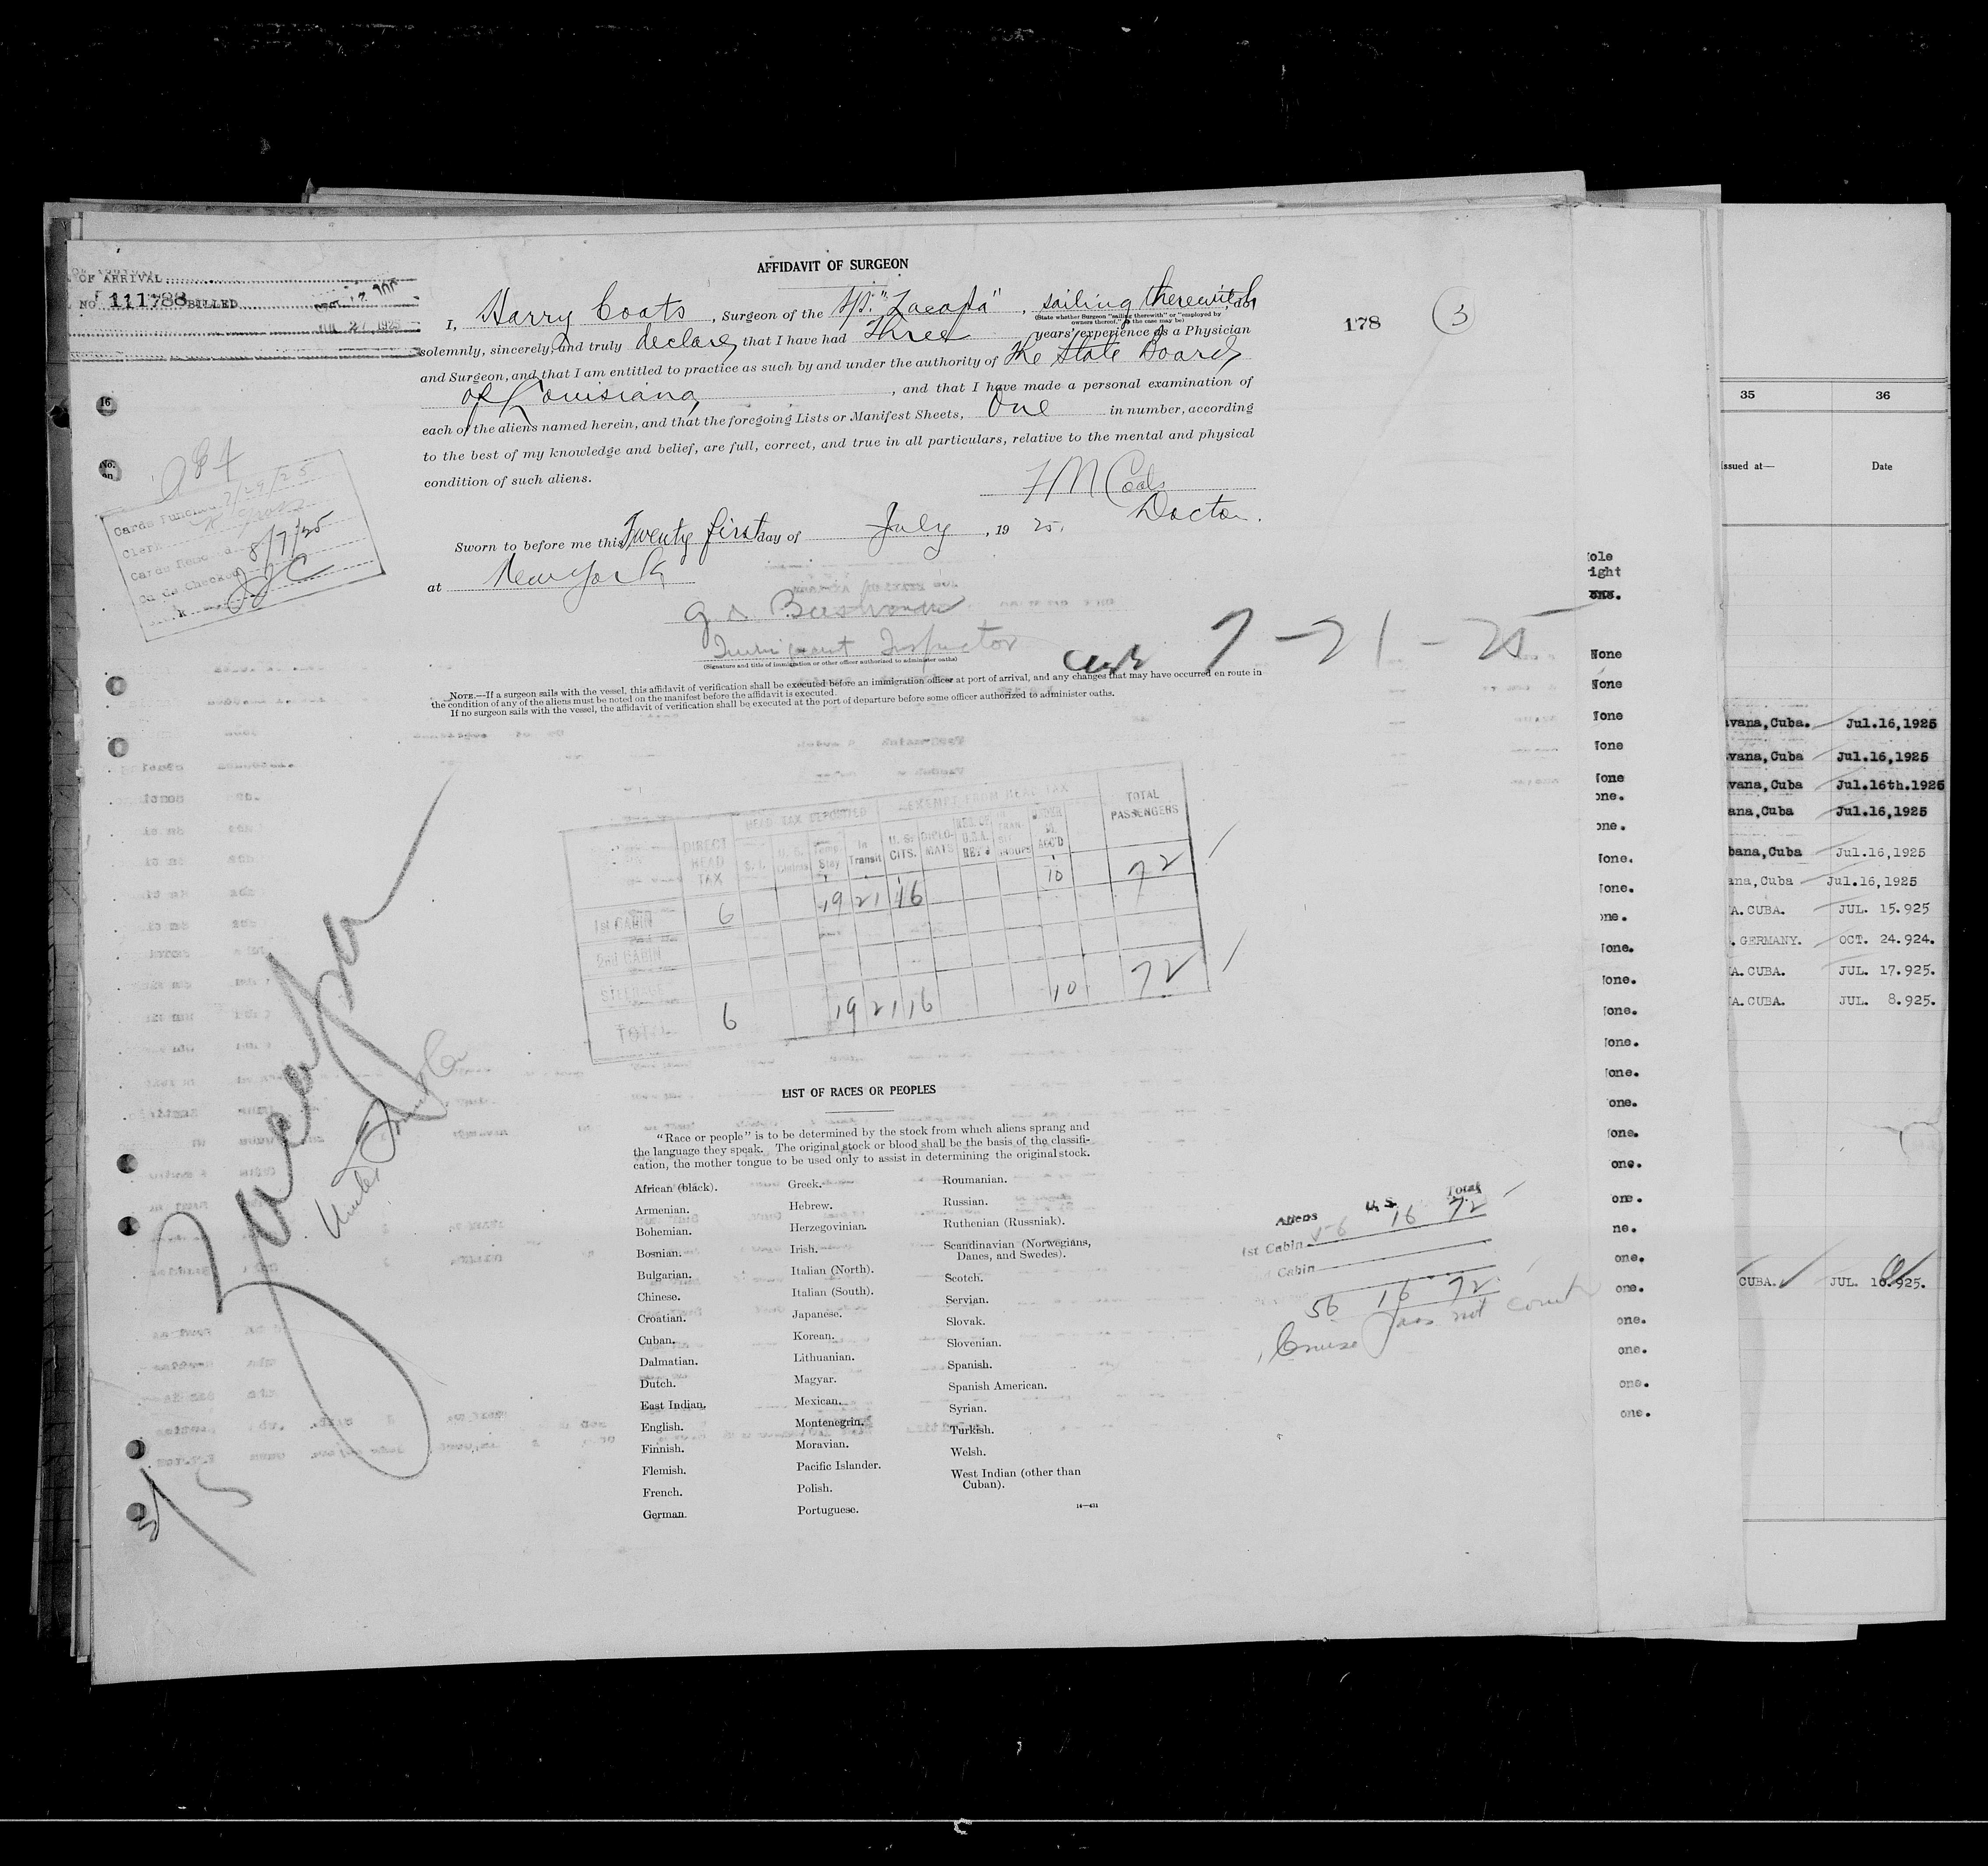 OF ARRIVAL
NO. 111788 BILLED
JUL 27 1925
178
3
AFFIDAVIT OF SURGEON
I, Harry Coats, Surgeon of the S/S. "Zacapa", sailing therewith, do
(State whether Surgeon "sailing therewith" or "employed by
owners thereof," as the case may be)
solemnly, sincerely, and truly declare that I have had Three years' experience as a Physician
and Surgeon, and that I am entitled to practice as such by and under the authority of The State Board
of Louisiana, and that I have made a personal examination of
each of the aliens named herein, and that the foregoing Lists or Manifest Sheets, One in number, according
to the best of my knowledge and belief, are full, correct, and true in all particulars, relative to the mental and physical
condition of such aliens.
H M Coats
Doctor.
Sworn to before me this Twenty first day of July, 19 25.
at New York
Immigrant Inspector
(Signature and title of immigration or other officer authorized to administer oaths)
7-21-25
NOTE.—If a surgeon sails with the vessel, this affidavit of verification shall be executed before an immigration officer at port of arrival, and any changes that may have occurred en route in
the condition of any of the aliens must be noted on the manifest before the affidavit is executed.
If no surgeon sails with the vessel, the affidavit of verification shall be executed at the port of departure before some officer authorized to administer oaths.
16
No.
on
Cards Punched 7/29/25
Clerk
8/7/25
Cards Checked
JJC
DIRECT HEAD TAX
HEAD TAX DEPOSITED
EXEMPT FROM HEAD TAX
TOTAL PASSENGERS
S. I.
Temp. Stay
In Transit
U. S. CITS.
DIPLO-MATS
RES. OF U.S.A. RET'G
UNDER 16 ACC'D
1st CABIN 6 19 21 16 10 72
2nd CABIN
STEERAGE
TOTAL 6 19 21 16 10 72
Zacapa
United Fruit Co
LIST OF RACES OR PEOPLES
"Race or people" is to be determined by the stock from which aliens sprang and
the language they speak. The original stock or blood shall be the basis of the classifi-
cation, the mother tongue to be used only to assist in determining the original stock.
African (black).
Armenian.
Bohemian.
Bosnian.
Bulgarian.
Chinese.
Croatian.
Cuban.
Dalmatian.
Dutch.
East Indian.
English.
Finnish.
Flemish.
French.
German.
Greek.
Hebrew.
Herzegovinian.
Irish.
Italian (North).
Italian (South).
Japanese.
Korean.
Lithuanian.
Magyar.
Mexican.
Montenegrin.
Moravian.
Pacific Islander.
Polish.
Portuguese.
Roumanian.
Russian.
Ruthenian (Russniak).
Scandinavian (Norwegians,
Danes, and Swedes).
Scotch.
Servian.
Slovak.
Slovenian.
Spanish.
Spanish American.
Syrian.
Turkish.
Welsh.
West Indian (other than
Cuban).
Aliens U. S. Total
1st Cabin 56 16 72
Cabin
56 16 72
Cruise Pass not count
ole
ight
one.
None
None
None
None
None
one.
one.
None.
None.
one.
None.
None.
None.
None.
None.
one.
None.
one.
one.
ne.
one.
one.
one.
one.
one.
one.
35 36
Issued at— Date
vana, Cuba. Jul.16,1925
vana, Cuba Jul.16,1925
vana, Cuba Jul.16th.1925
ana, Cuba Jul.16,1925
bana, Cuba Jul.16,1925
ana, Cuba Jul.16,1925
A. CUBA. JUL. 15.925
. GERMANY. OCT. 24.924.
A. CUBA. JUL. 17.925.
A. CUBA. JUL. 8.925.
CUBA. JUL. 10.925.